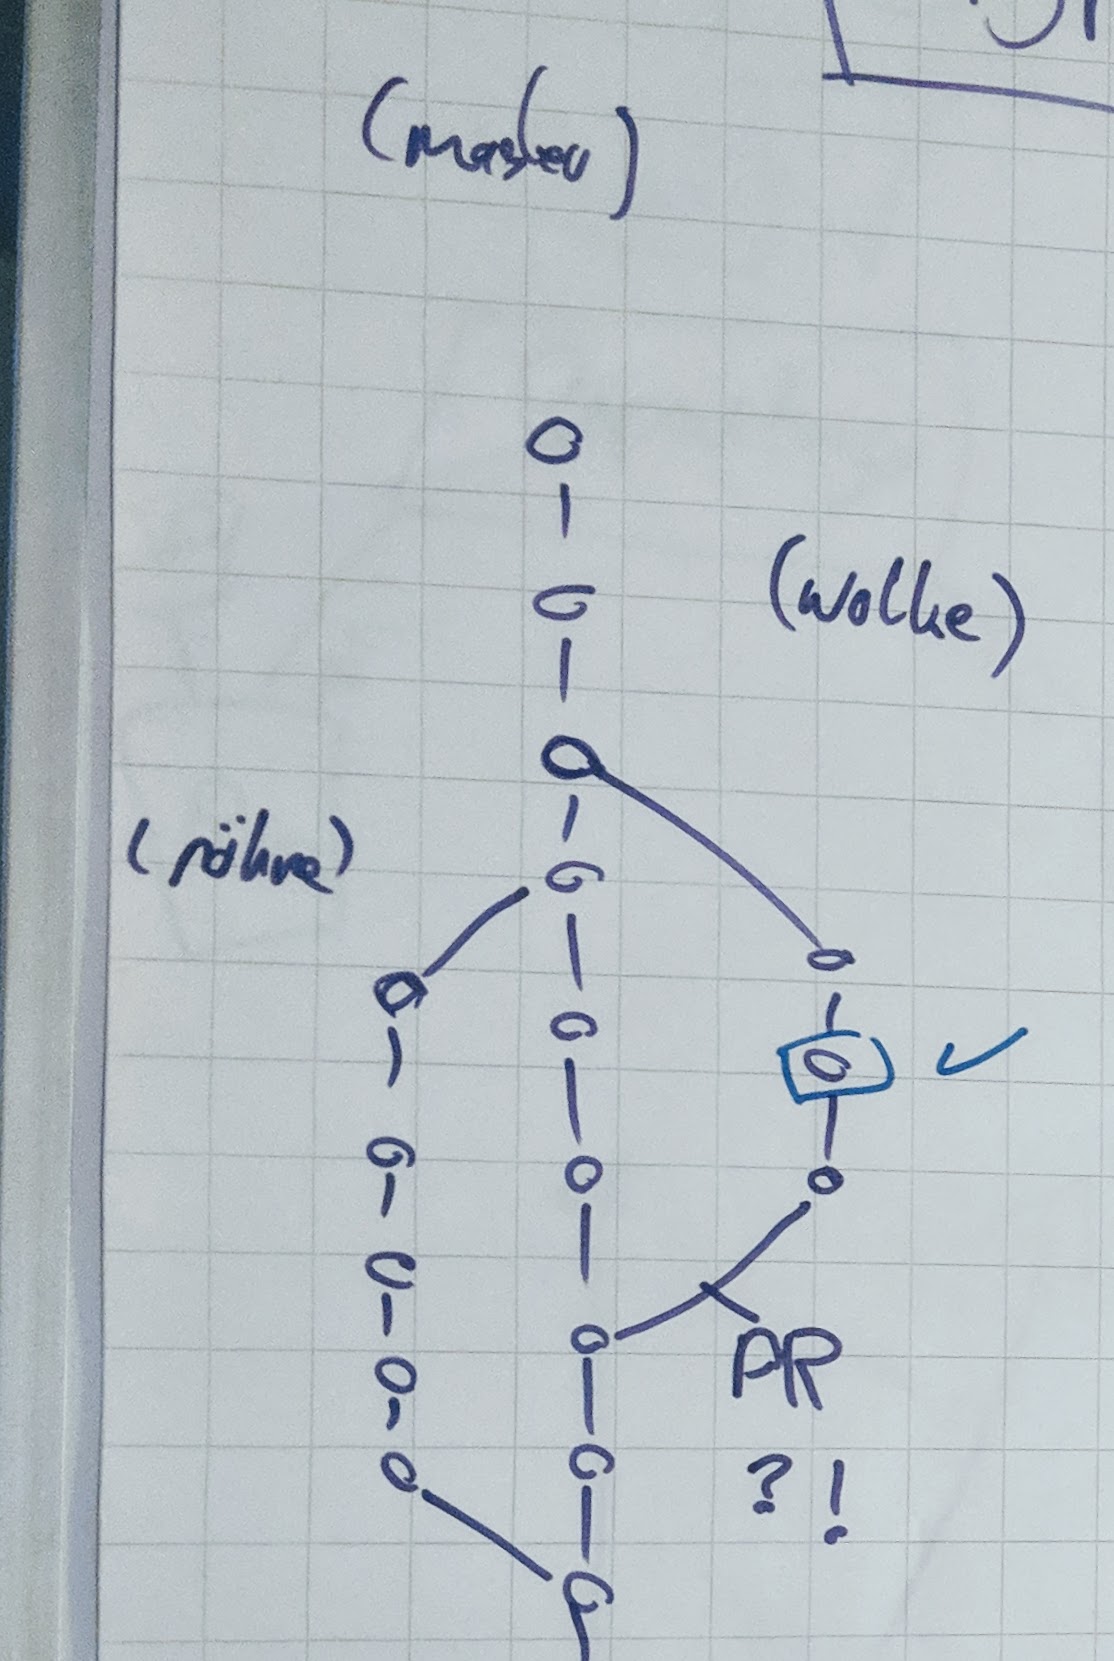 (master)
(wolke)
(röhre)
PR
?!